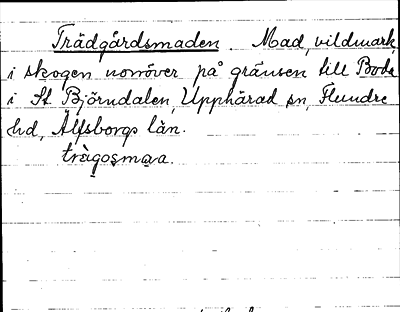 Trädgårdsmaden. Mad, vildmark,
i skogen norröver på gränsen till Boda
i St. Björndalen, Upphärad sn, Flundre
hd, Älfsborgs län.
trägosmaa.